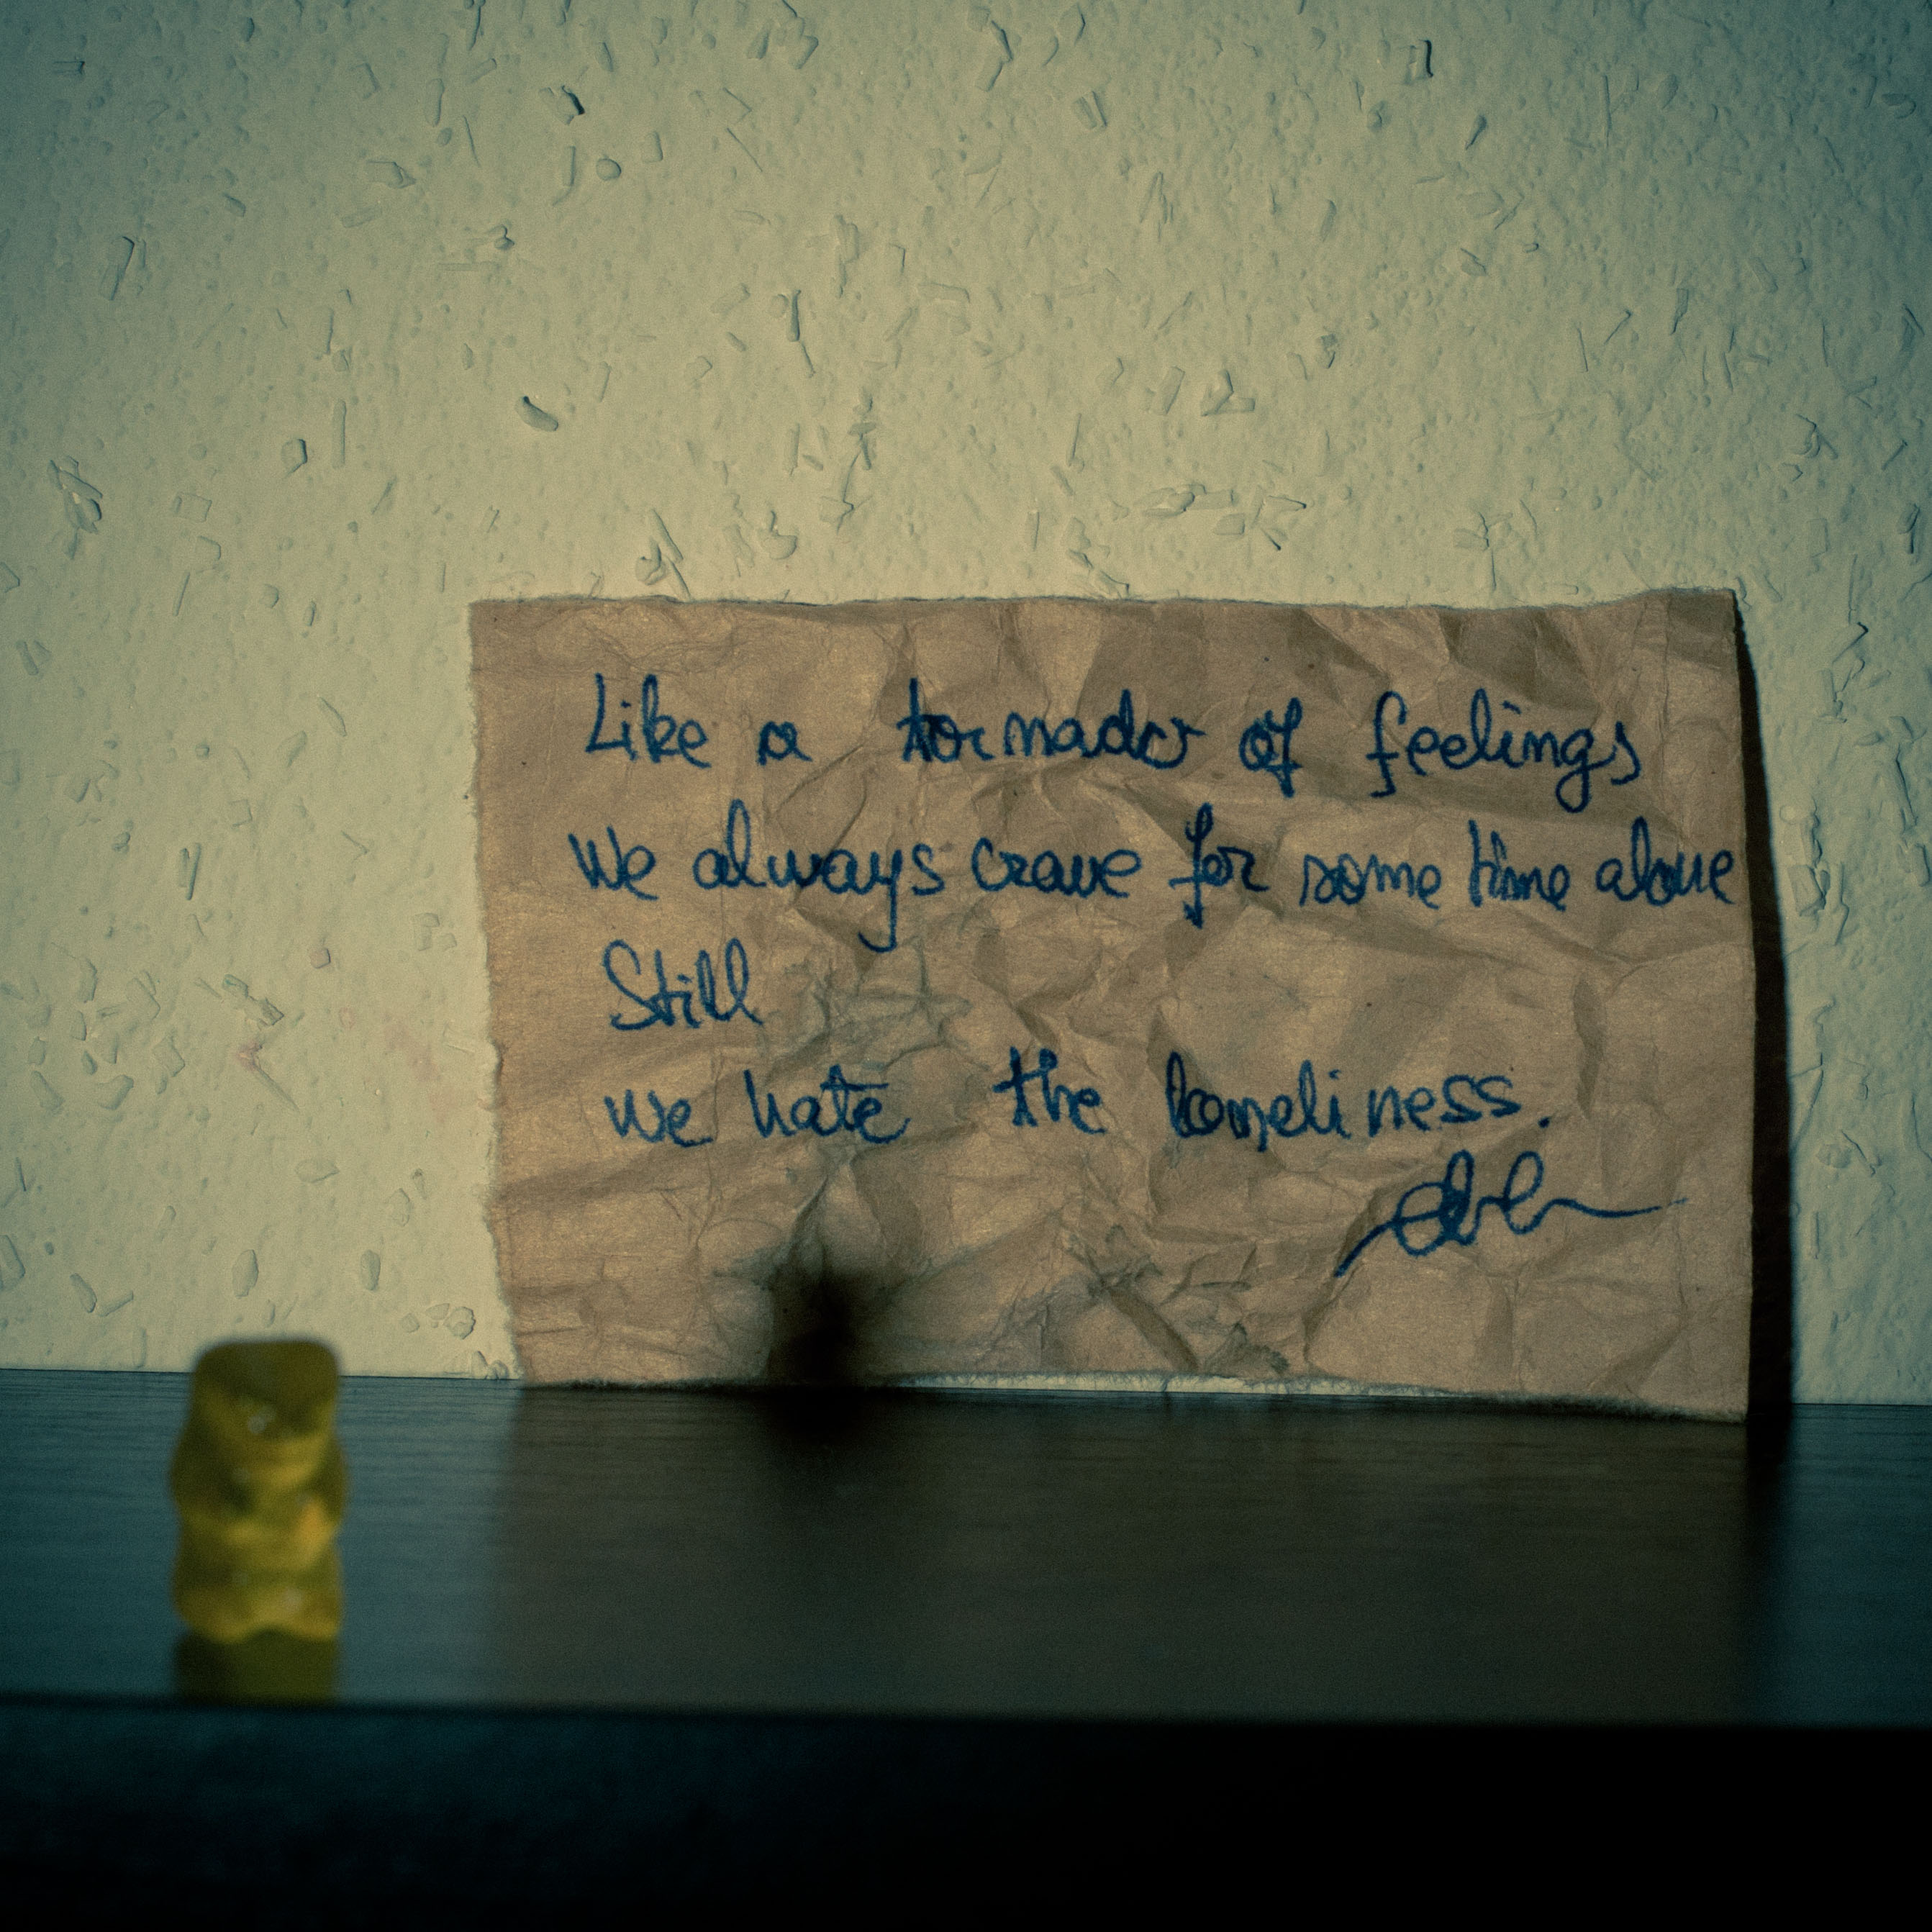 Like a tornado of feelings
We always crave for some time alone
Still
we hate the loneliness.